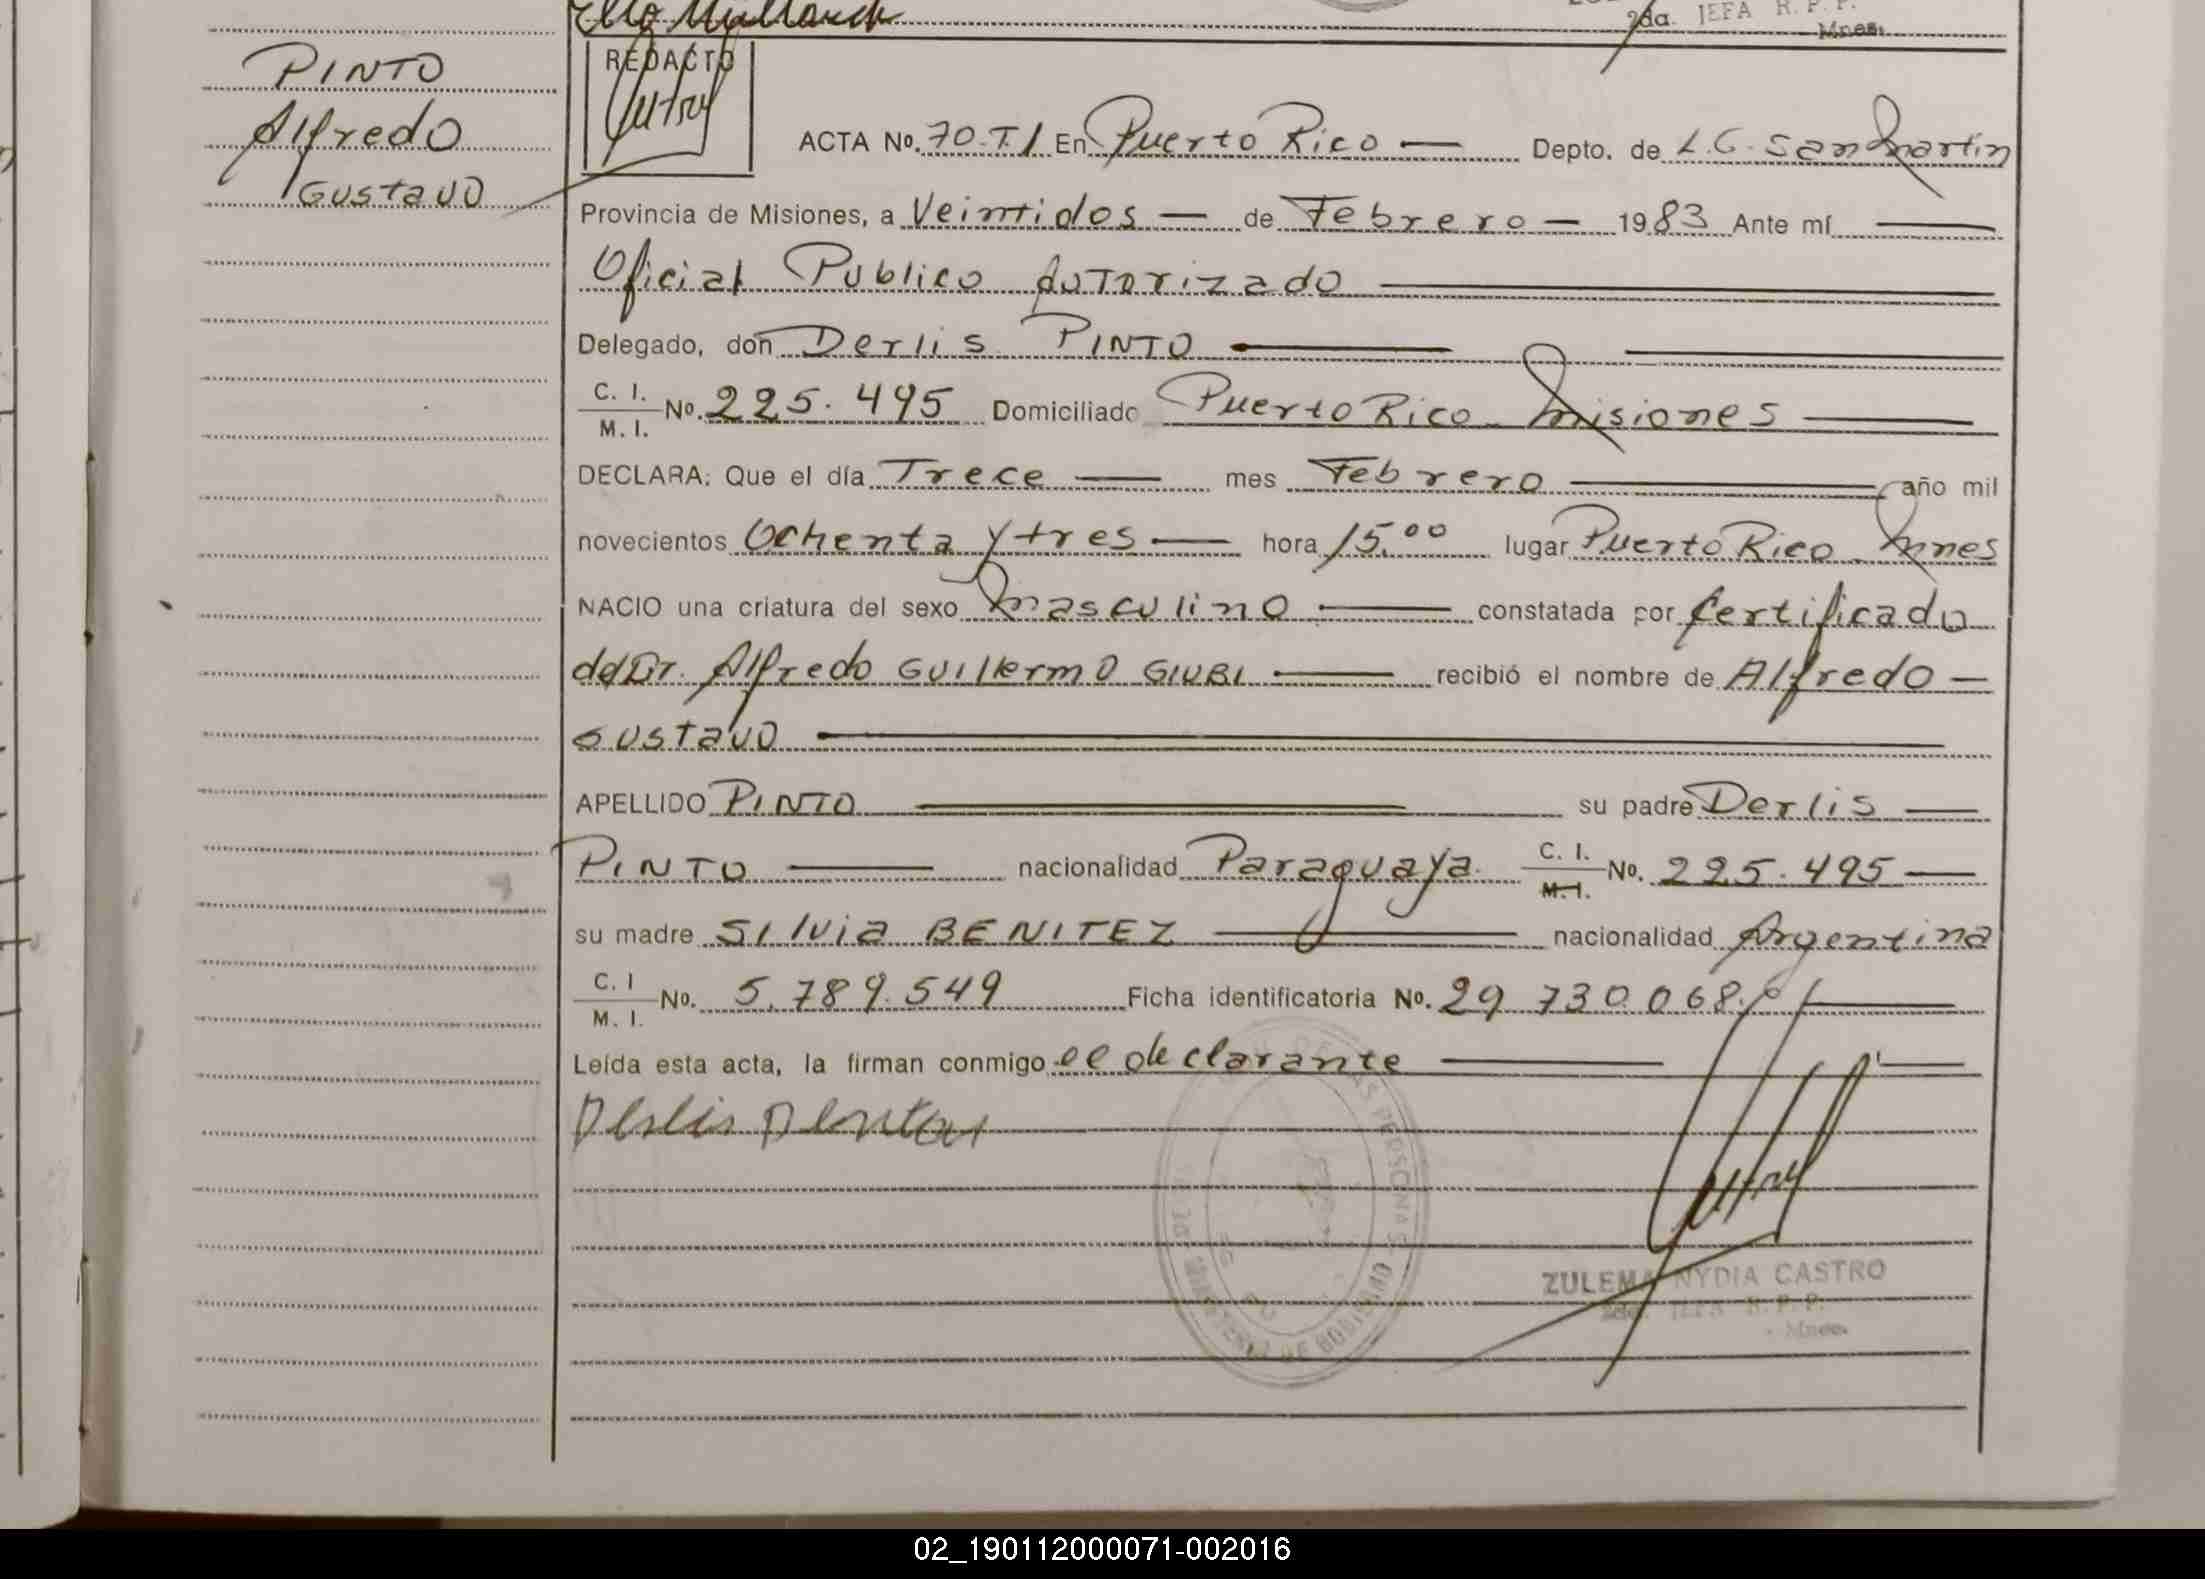 2da. JEFA R. P. P.
Mnes.
PINTO
Alfredo
Gustavo
REDACTO
ACTA No. 70.T.I En Puerto Rico — Depto. de L.G. San Martin
Provincia de Misiones, a Veintidos — de Febrero — 1983 Ante mí
Oficial Publico Autorizado
Delegado, don Derlis PINTO
C. I.
M. I. No. 225.495 Domiciliado Puerto Rico Misiones
DECLARA: Que el día Trece — mes Febrero año mil
novecientos Ochenta y tres — hora 15,00 lugar Puerto Rico Mnes
NACIO una criatura del sexo Masculino — constatada por Certificado
del Dr. Alfredo Guillermo GIUBI — recibió el nombre de Alfredo —
Gustavo
APELLIDO PINTO su padre Derlis
PINTO — nacionalidad Paraguaya C. I.
M. I. No. 225.495 —
su madre Silvia BENITEZ nacionalidad Argentina
C. I
M. I. No. 5.789.549 Ficha identificatoria No. 29.730.068
Leída esta acta, la firman conmigo el declarante
ZULEMA NYDIA CASTRO
2da. JEFA R. P. P.
Mnes.
MINISTERIO DE GOBIERNO
DE LAS PERSONAS
02_190112000071-002016